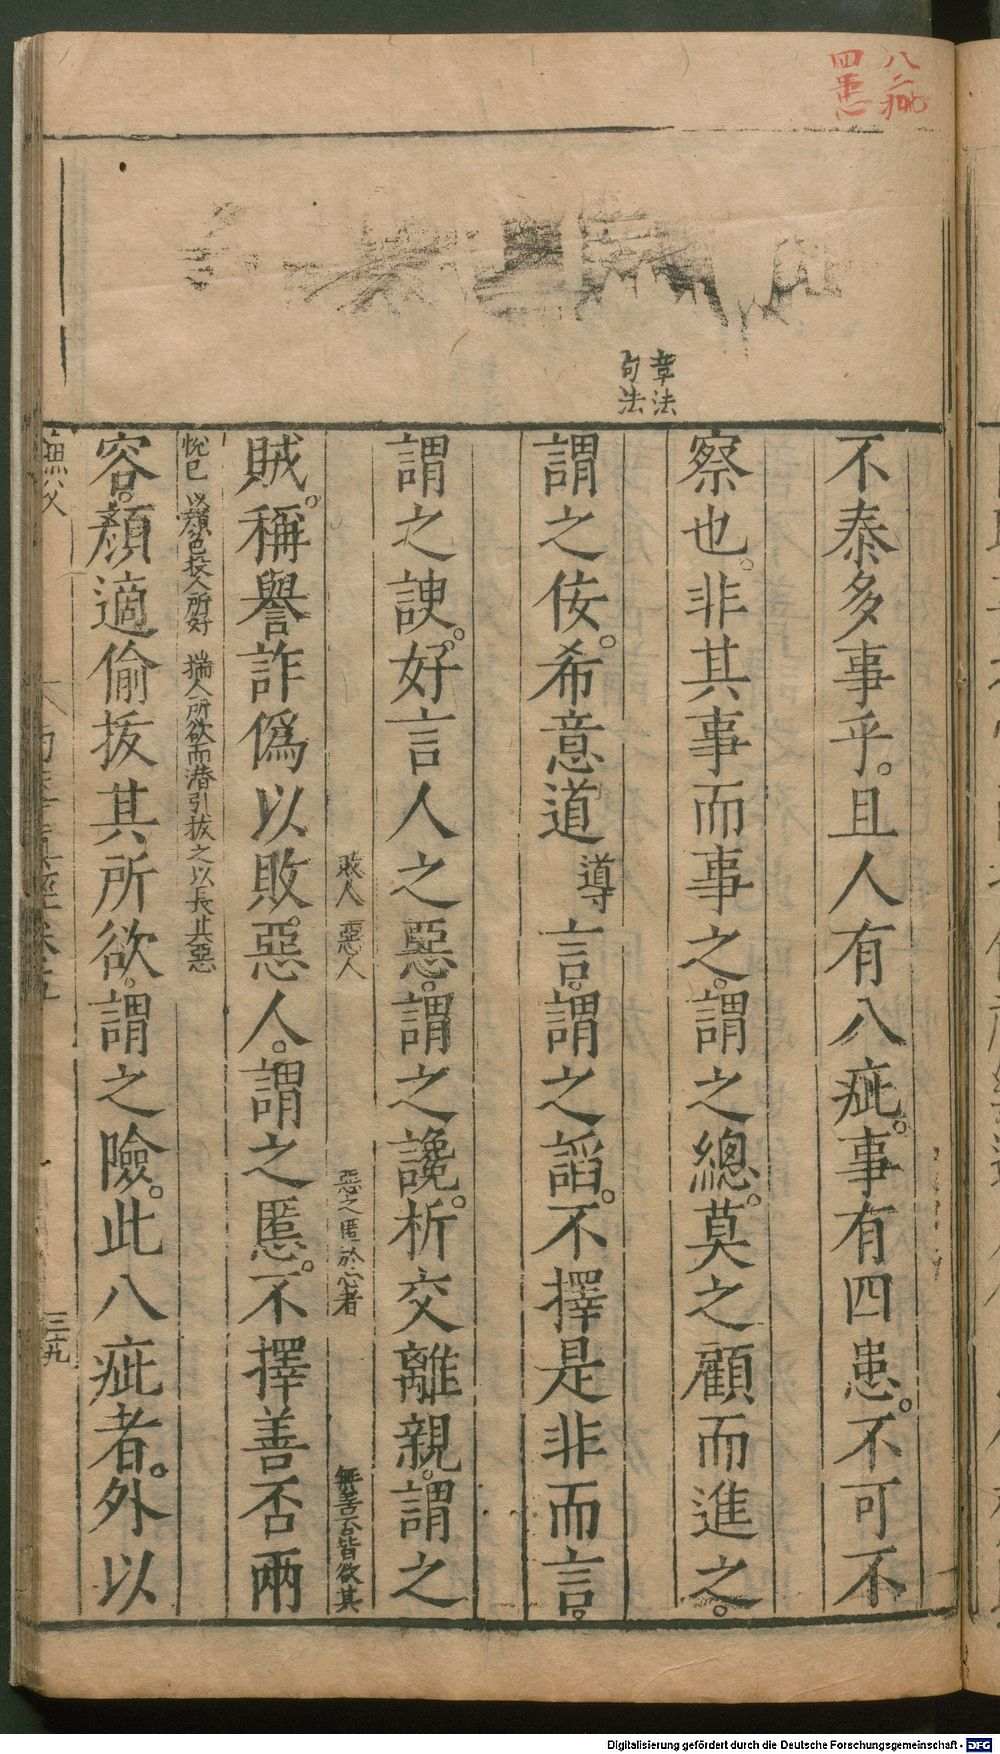 八疵
四患
章法
句法
不泰多事乎。且人有八疵。事有四患。不可不
察也。非其事而事之。謂之總。莫之顧而進之。
謂之佞。希意道導言。謂之謟。不擇是非而言。
謂之諛。好言人之惡。謂之讒。析交離親。謂之
敗人 惡人 惡之匿於心者 無善否皆欲其
賊。稱譽詐僞以敗。惡人。謂之慝。不擇善否兩
悅已 以顏色投人所好 揣人所欲而潛引拔之以長其惡
容。顏適偷拔其所欲。謂之險。此八疵者。外以
三十九
Digitalisierung gefördert durch die Deutsche Forschungsgemeinschaft - DFG